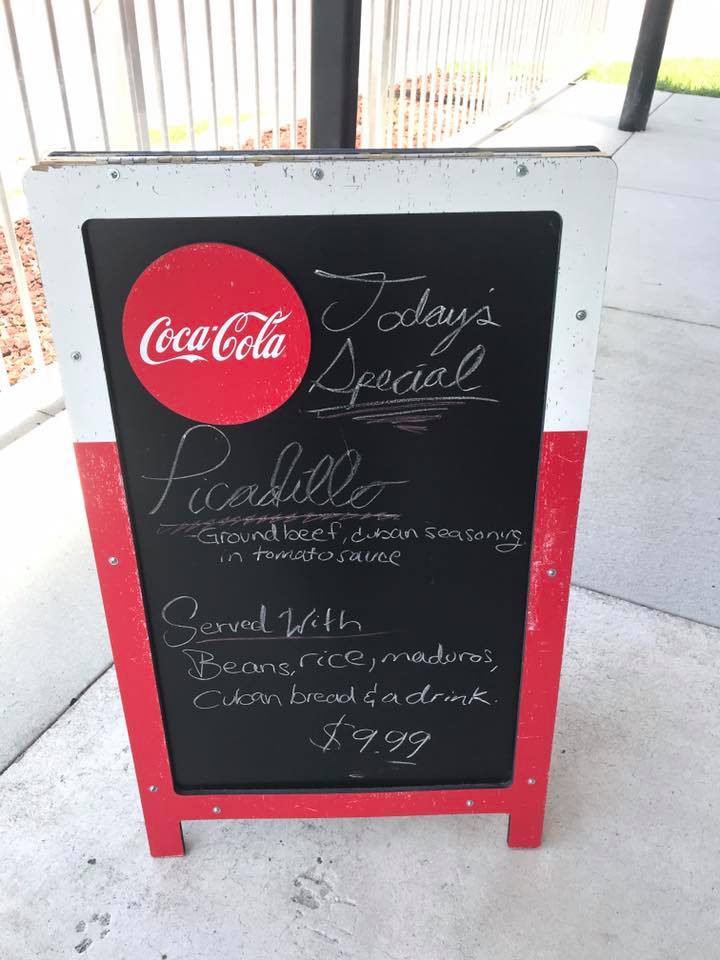 Coca-Cola
Today's
Special
Picadillo
-Ground beef, cuban seasoning
in tomato sauce
Served With
Beans, rice, maduros,
Cuban bread & a drink.
$9.99